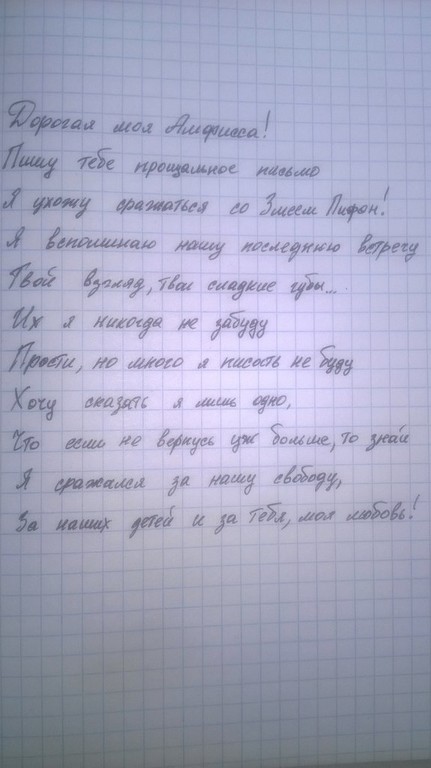 Дорогая моя Амфисса!
Пишу тебе прощальное письмо
Я ухожу сражаться со Змеем Пифон!
Я вспоминаю нашу последнюю встречу
Твой взгляд, твои сладкие губы...
Их я никогда не забуду
Прости, но много я писать не буду
Хочу сказать я лишь одно,
Что если не вернусь уж больше, то знай
Я сражался за нашу свободу,
За наших детей и за тебя, моя любовь!